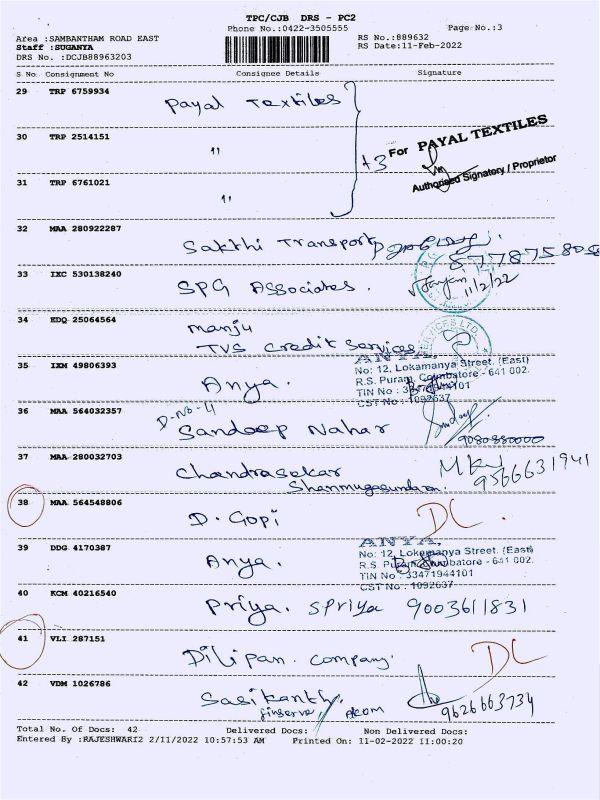 TPC/CJB DRS - PC2
Phone No.:0422-3505555 Page No.:3
Area :SAMBANTHAM ROAD EAST RS No.:889632
Staff :SUGANYA RS Date:11-Feb-2022
DRS No. :DCJB88963203
S No Consignment No Consignee Details Signature
29 TRP 6759934 Payal Textiles
30 TRP 2514151 "
+3 For PAYAL TEXTILES
Authorised Signatory / Proprietor
31 TRP 6761021 "
32 MAA 280922287 Sakthi Transport
33 IXC 530138240 SPG Associates. 11/2/22
34 EDQ 25064564 Manju
TVS Credit Services
35 IXM 49806393 Anya.
ANYA,
No: 12, Lokamanya Street. (East)
R.S. Puram, Coimbatore - 641 002.
TIN No : 33471944101
CST No : 1092637
36 MAA 564032357 D-No-4 Sandeep Nahar 9080880000
37 MAA 280032703 Chandrasekar
Shanmugasundaram. 9566631941
38 MAA 564548806 D. Gopi DC.
39 DDG 4170387 Anya.
ANYA,
No: 12, Lokamanya Street. (East)
R.S. Puram, Coimbatore - 641 002.
TIN No : 33471944101
CST No : 1092637
40 KCM 40216540 Priya. Spriya 9003611831
41 VLI 287151 Dilipan. Company. DC
42 VDM 1026786 Sasikanth,
finserve, 9626663734
Total No. Of Docs: 42 Delivered Docs: Non Delivered Docs:
Entered By :RAJESHWARI2 2/11/2022 10:57:53 AM Printed On: 11-02-2022 11:00:20